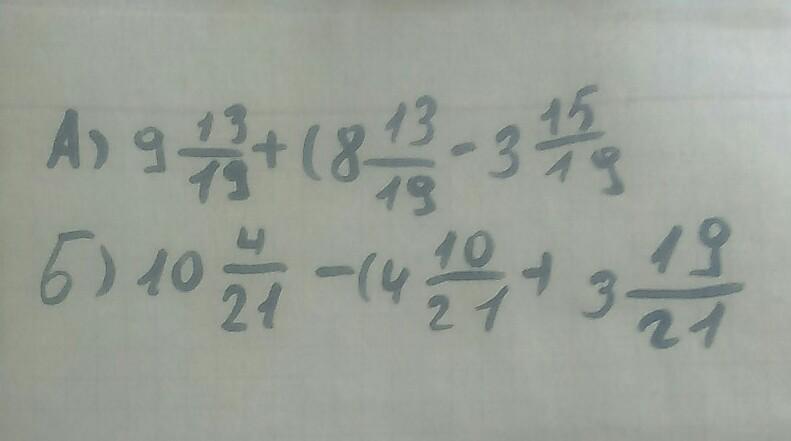 А) 9 13/19 + (8 13/19 - 3 15/19
б) 10 4/21 - (4 10/21 + 3 19/21